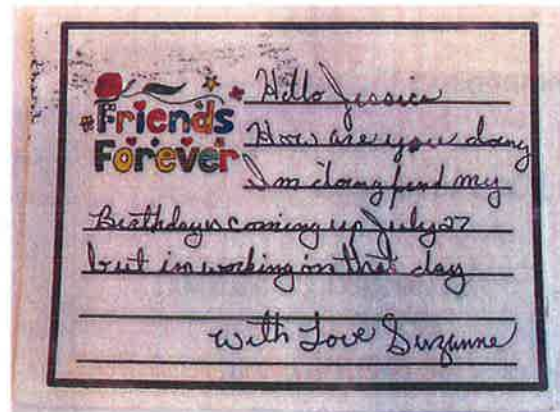 Friends
Forever
Hello Jessica
How are you doing
Im doing find my
Birthday is coming up July 27
but im working on that day
with Love Suzanne